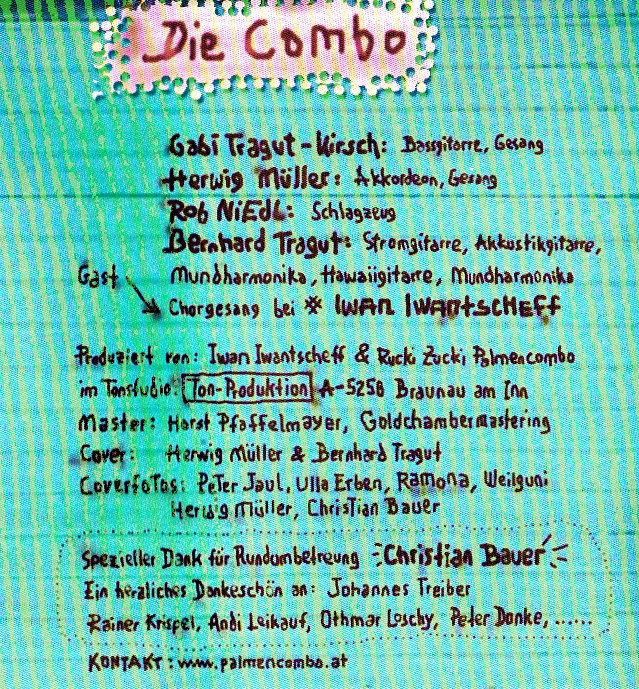 Die Combo
Gabi Tragut-Kirsch: Bassgitarre, Gesang
Herwig Müller: Akkordeon, Gesang
Rob Niedl: Schlagzeug
Bernhard Tragut: Stromgitarre, Akkustikgitarre,
Mundharmonika, Hawaiigitarre, Mundharmonika
Gast
Chorgesang bei ※ IWAN IWANTSCHEFF
Produziert von: Iwan Iwantscheff & Rucki Zucki Palmencombo
im Tonstudio: Ton-Produktion A-5250 Braunau am Inn
Master: Horst Pfaffelmayer, Goldchambermastering
Cover: Herwig Müller & Bernhard Tragut
Coverfotos: Peter Jaul, Ulla Erben, Ramona, Weilguni
Herwig Müller, Christian Bauer
Spezieller Dank für Rundombetreung Christian Bauer
Ein herzliches Dankeschön an: Johannes Treiber
Rainer Krispel, Andi Leikauf, Othmar Loschy, Peter Donke, ......
KONTAKT: www.palmencombo.at